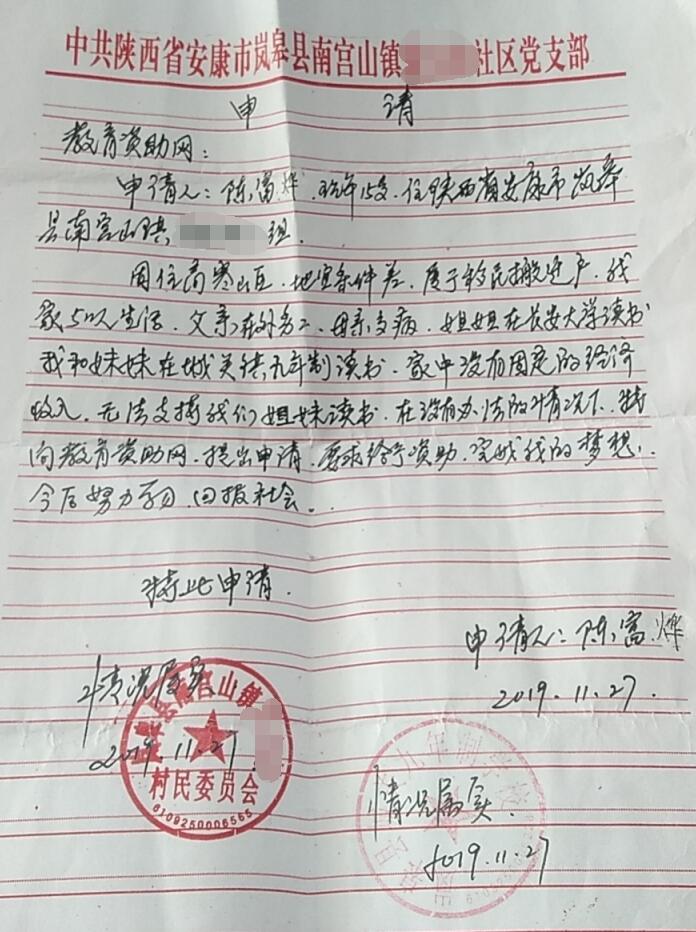 中共陕西省安康市岚皋县南宫山镇社区党支部
申 请
教育资助网:
申请人:陈富烨.现年15岁.住陕西省安康市岚皋
县南宫山镇组.
因住高寒山区.地里条件差.属于移民搬迁户.我
家5口人生活.父亲在外务工.母亲多病.姐姐在长安大学读书
我和妹妹在城关镇九年制读书.家中没有固定的经济
收入.无法支持我们姐妹读书.在没有办法的情况下.特
向教育资助网.提出申请.要求给予资助.完成我的梦想.
今后努力学习.回报社会.
特此申请.
申请人:陈富烨
2019.11.27.
情况属实
2019.11.27
县南宫山镇
村民委员会
6109250006565
九年制学校
情况属实.
2019.11.27